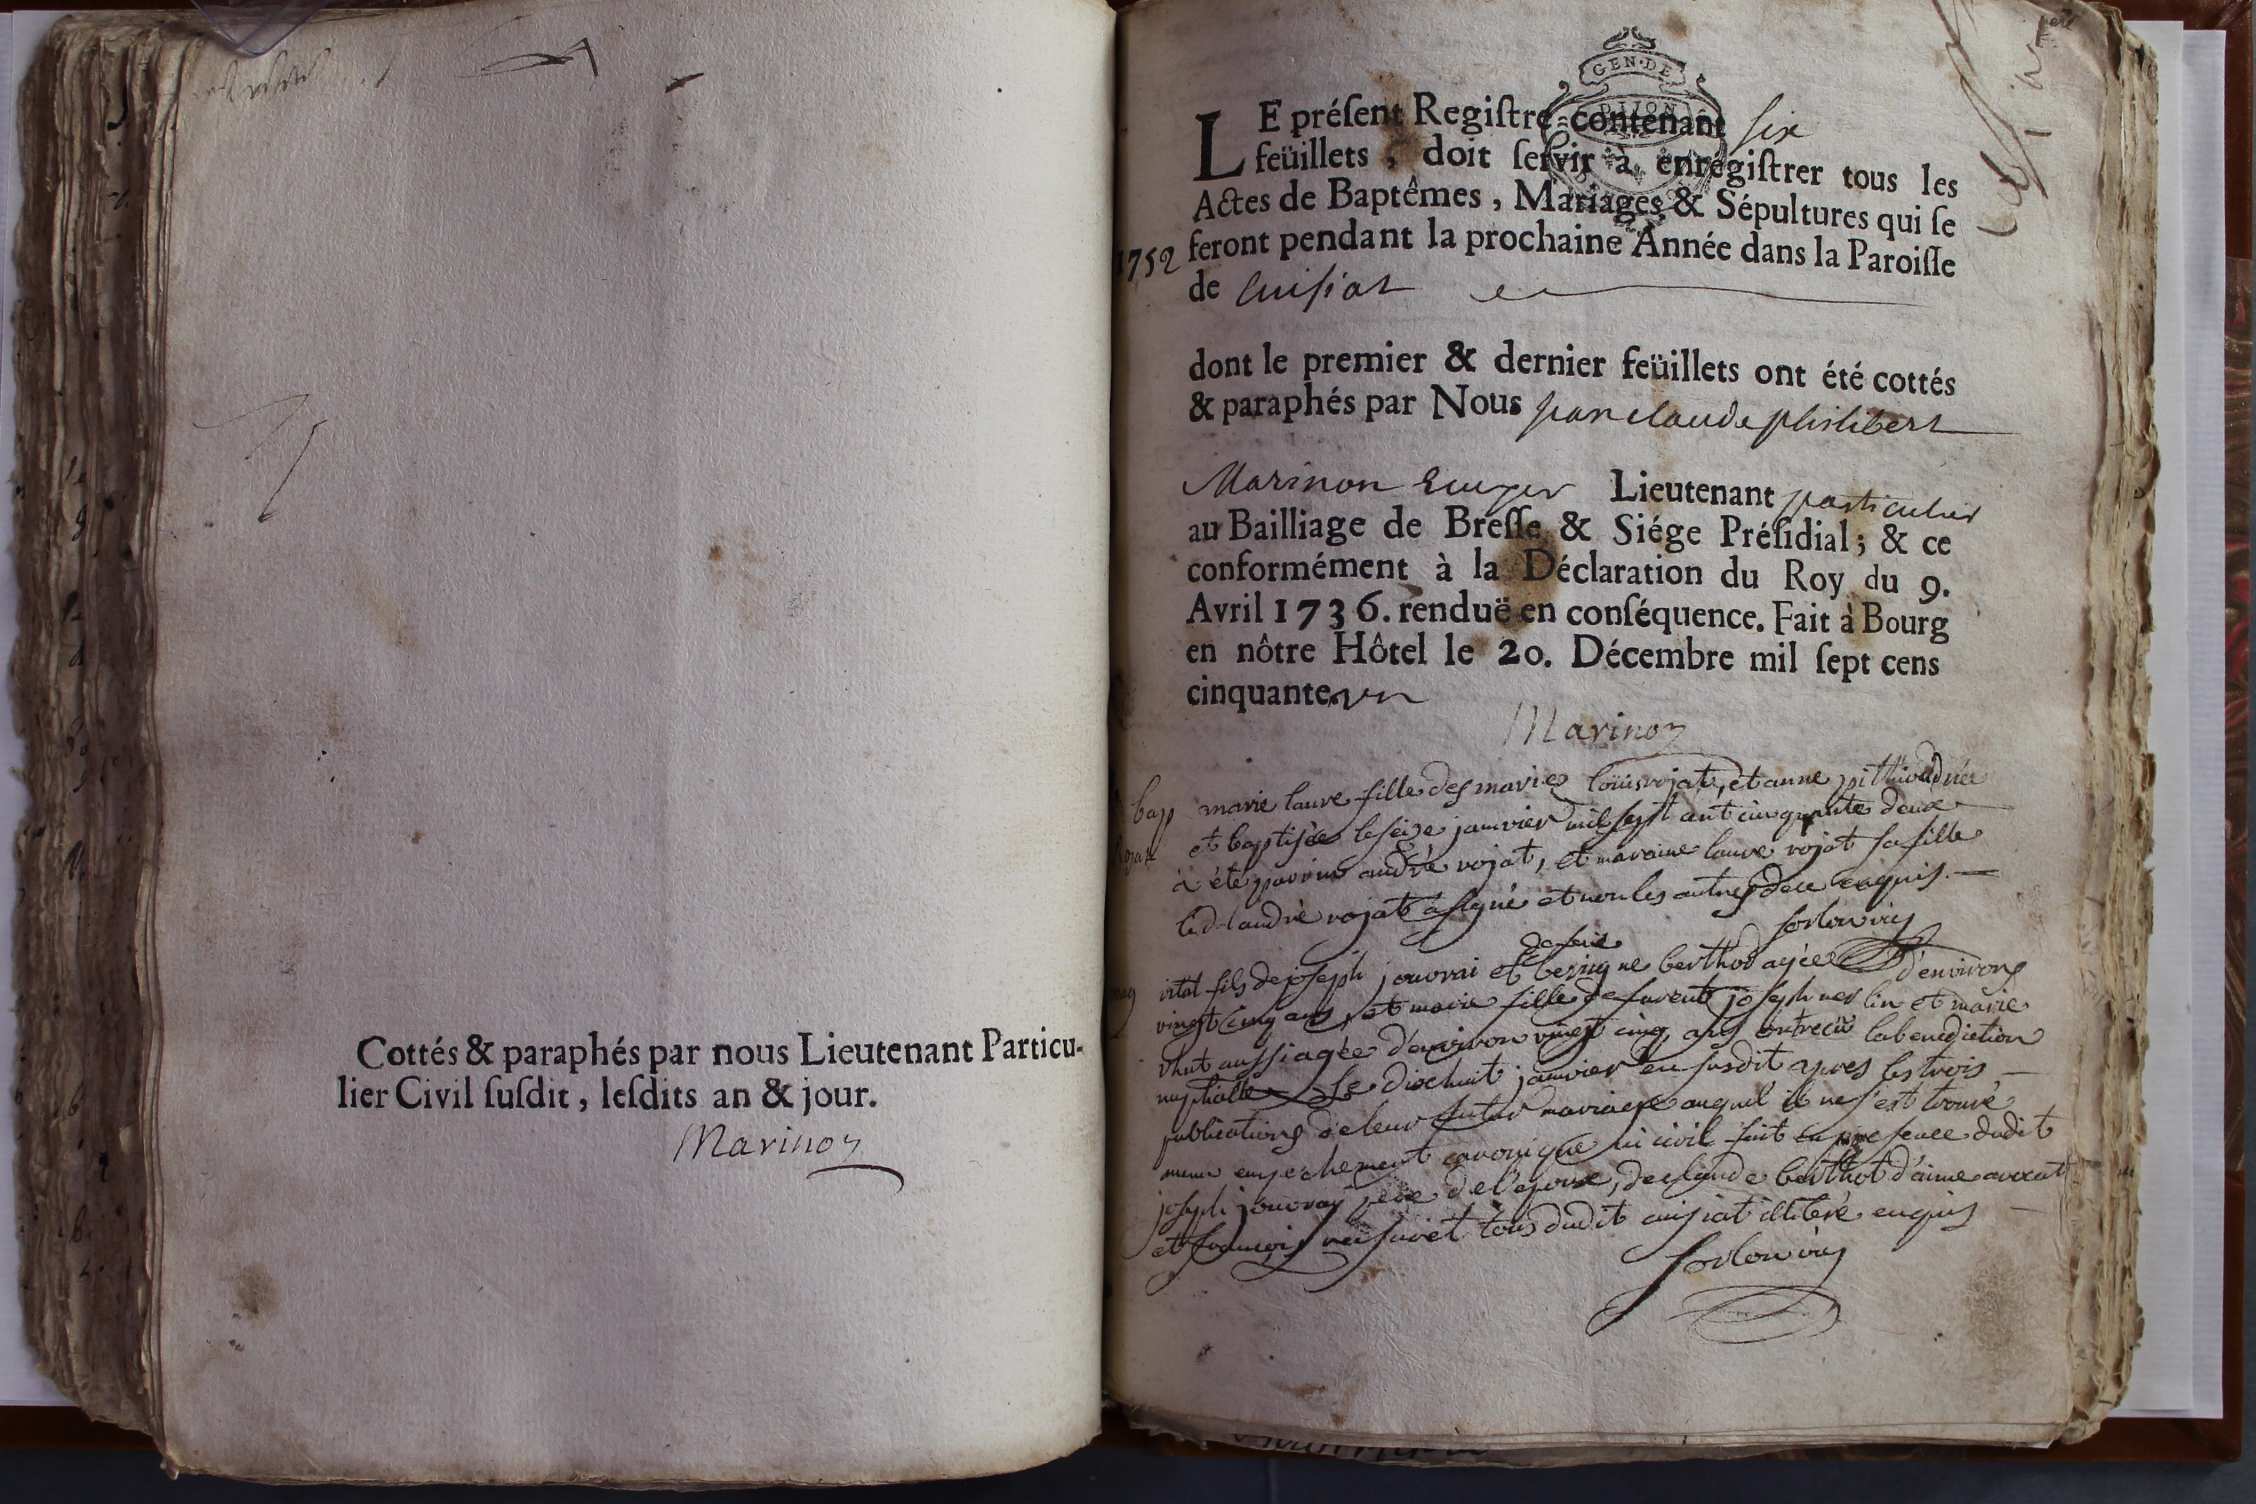 Cottés & paraphés par nous Lieutenant Particu-
lier Civil ſuſdit, leſdits an & jour.
Marinon
GEN·DE
DIJON
LE préſent Regiſtre contenant six
feüillets, doit ſervir à enregiſtrer tous les
Actes de Baptêmes, Mariages & Sépultures qui ſe
1752 feront pendant la prochaine Année dans la Paroiſſe
de Cuisiat
dont le premier & dernier feüillets ont été cottés
& paraphés par Nous jean claude philibert
Marinon Lieutenant particulier
au Bailliage de Breſſe & Siége Préſidial; & ce
conformément à la Déclaration du Roy du 9.
Avril 1736. renduë en conſéquence. Fait à Bourg
en nôtre Hôtel le 20. Décembre mil ſept cens
cinquante un
Marinon
bap marie laure fille des maries loüis rojat, et anne
et baptisée le seize janvier mil sept cent cinquante deux
à été parrin andrè rojat, et maraine laure rojat sa fille
led. andrè rojat à signé et non les autres de ce enquis.
de feüe
fils de joseph jouvrai et benigne berthod agée d'environs
vingt cinq ans, et marie fille de furent joseph et marie
aussi agée d'environ vingt cinq ans ont reçû la benediction
nuptialle le dixhuit janvier an susdit apres les trois
publications de leur futur mariage auquel il ne s'est trouvé
aucun empechement canonique ni civil fait en presence dudit
joseph jouvray pere de l'epoux, de claude berthot d'aime
et françois tous dudit cuisiat illiteré enquis